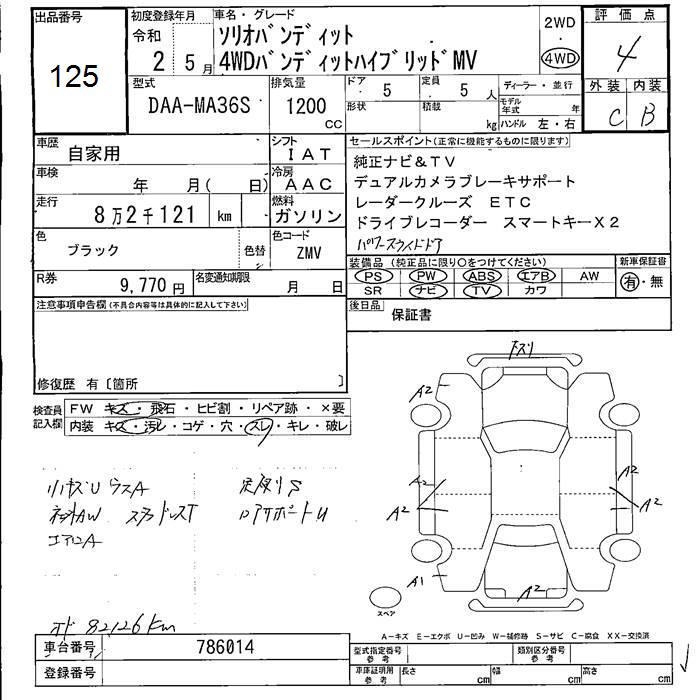 出品番号
125
初度登録年月
令和
2 5月
車名・グレード
ソリオバンディット
4WDバンディットハイブリッドMV
2WD
・
4WD
評価点
4
外装 内装
C B
型式
DAA-MA36S
排気量
1200
CC
ドア
5
定員
5 人
形状
積載
kg
ディーラー・並行
モデル年式 年
ハンドル 左・右
車歴
自家用
シフト
IAT
車検
年 月( 日)
冷房
AAC
走行
8万2千121 km
燃料
ガソリン
色
ブラック
色替
色コード
ZMV
R券
9,770円
名変通知期限
月 日
セールスポイント(正常に機能するものに限ります)
純正ナビ&TV
デュアルカメラブレーキサポート
レーダークルーズ ETC
ドライブレコーダー スマートキーX2
パワースライドドア
装備品(純正品に限り○をつけてください)
PS PW ABS エアB AW
SR ナビ TV カワ
新車保証書
有・無
後日品
保証書
注意事項申告欄(不具合内容等は具体的に記入して下さい)
修復歴 有〔箇所 〕
検査員記入欄
FW キズ・飛石・ヒビ割・リペア跡・×要
内装 キズ・汚レ・コゲ・穴・スレ・キレ・破レ
下スリ
A2
A2
A2
A2
A2
A1
A2
スペア
ロアサポートU
エアロA
オド 82126km
A-キズ E-エクボ U-凹み W-補修跡 S-サビ C-腐食 XX-交換済
車台番号
786014
登録番号
型式指定番号
参考
類別区分番号
参考
車庫証明用
参考
長さ cm
幅 cm
高さ cm